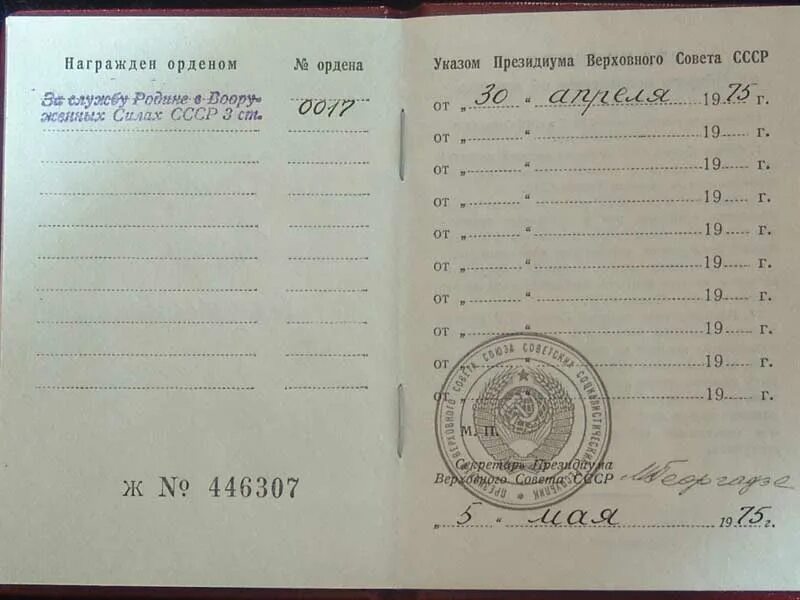 Награжден орденом № ордена
За службу Родине в Воору-
женных Силах СССР 3 ст. 0017
Ж № 446307
Указом Президиума Верховного Совета СССР
от „ 30 “ апреля 1975 г.
от „ “ 19 г.
от „ “ 19 г.
от „ “ 19 г.
от „ “ 19 г.
от „ “ 19 г.
от „ “ 19 г.
от „ “ 19 г.
от „ “ 19 г.
от „ “ 19 г.
ПРЕЗИДИУМ ВЕРХОВНОГО СОВЕТА СОЮЗА СОВЕТСКИХ СОЦИАЛИСТИЧЕСКИХ РЕСПУБЛИК
М. П.
Секретарь Президиума
Верховного Совета СССР МГеоргадзе
„ 5 “ мая 1975 г.